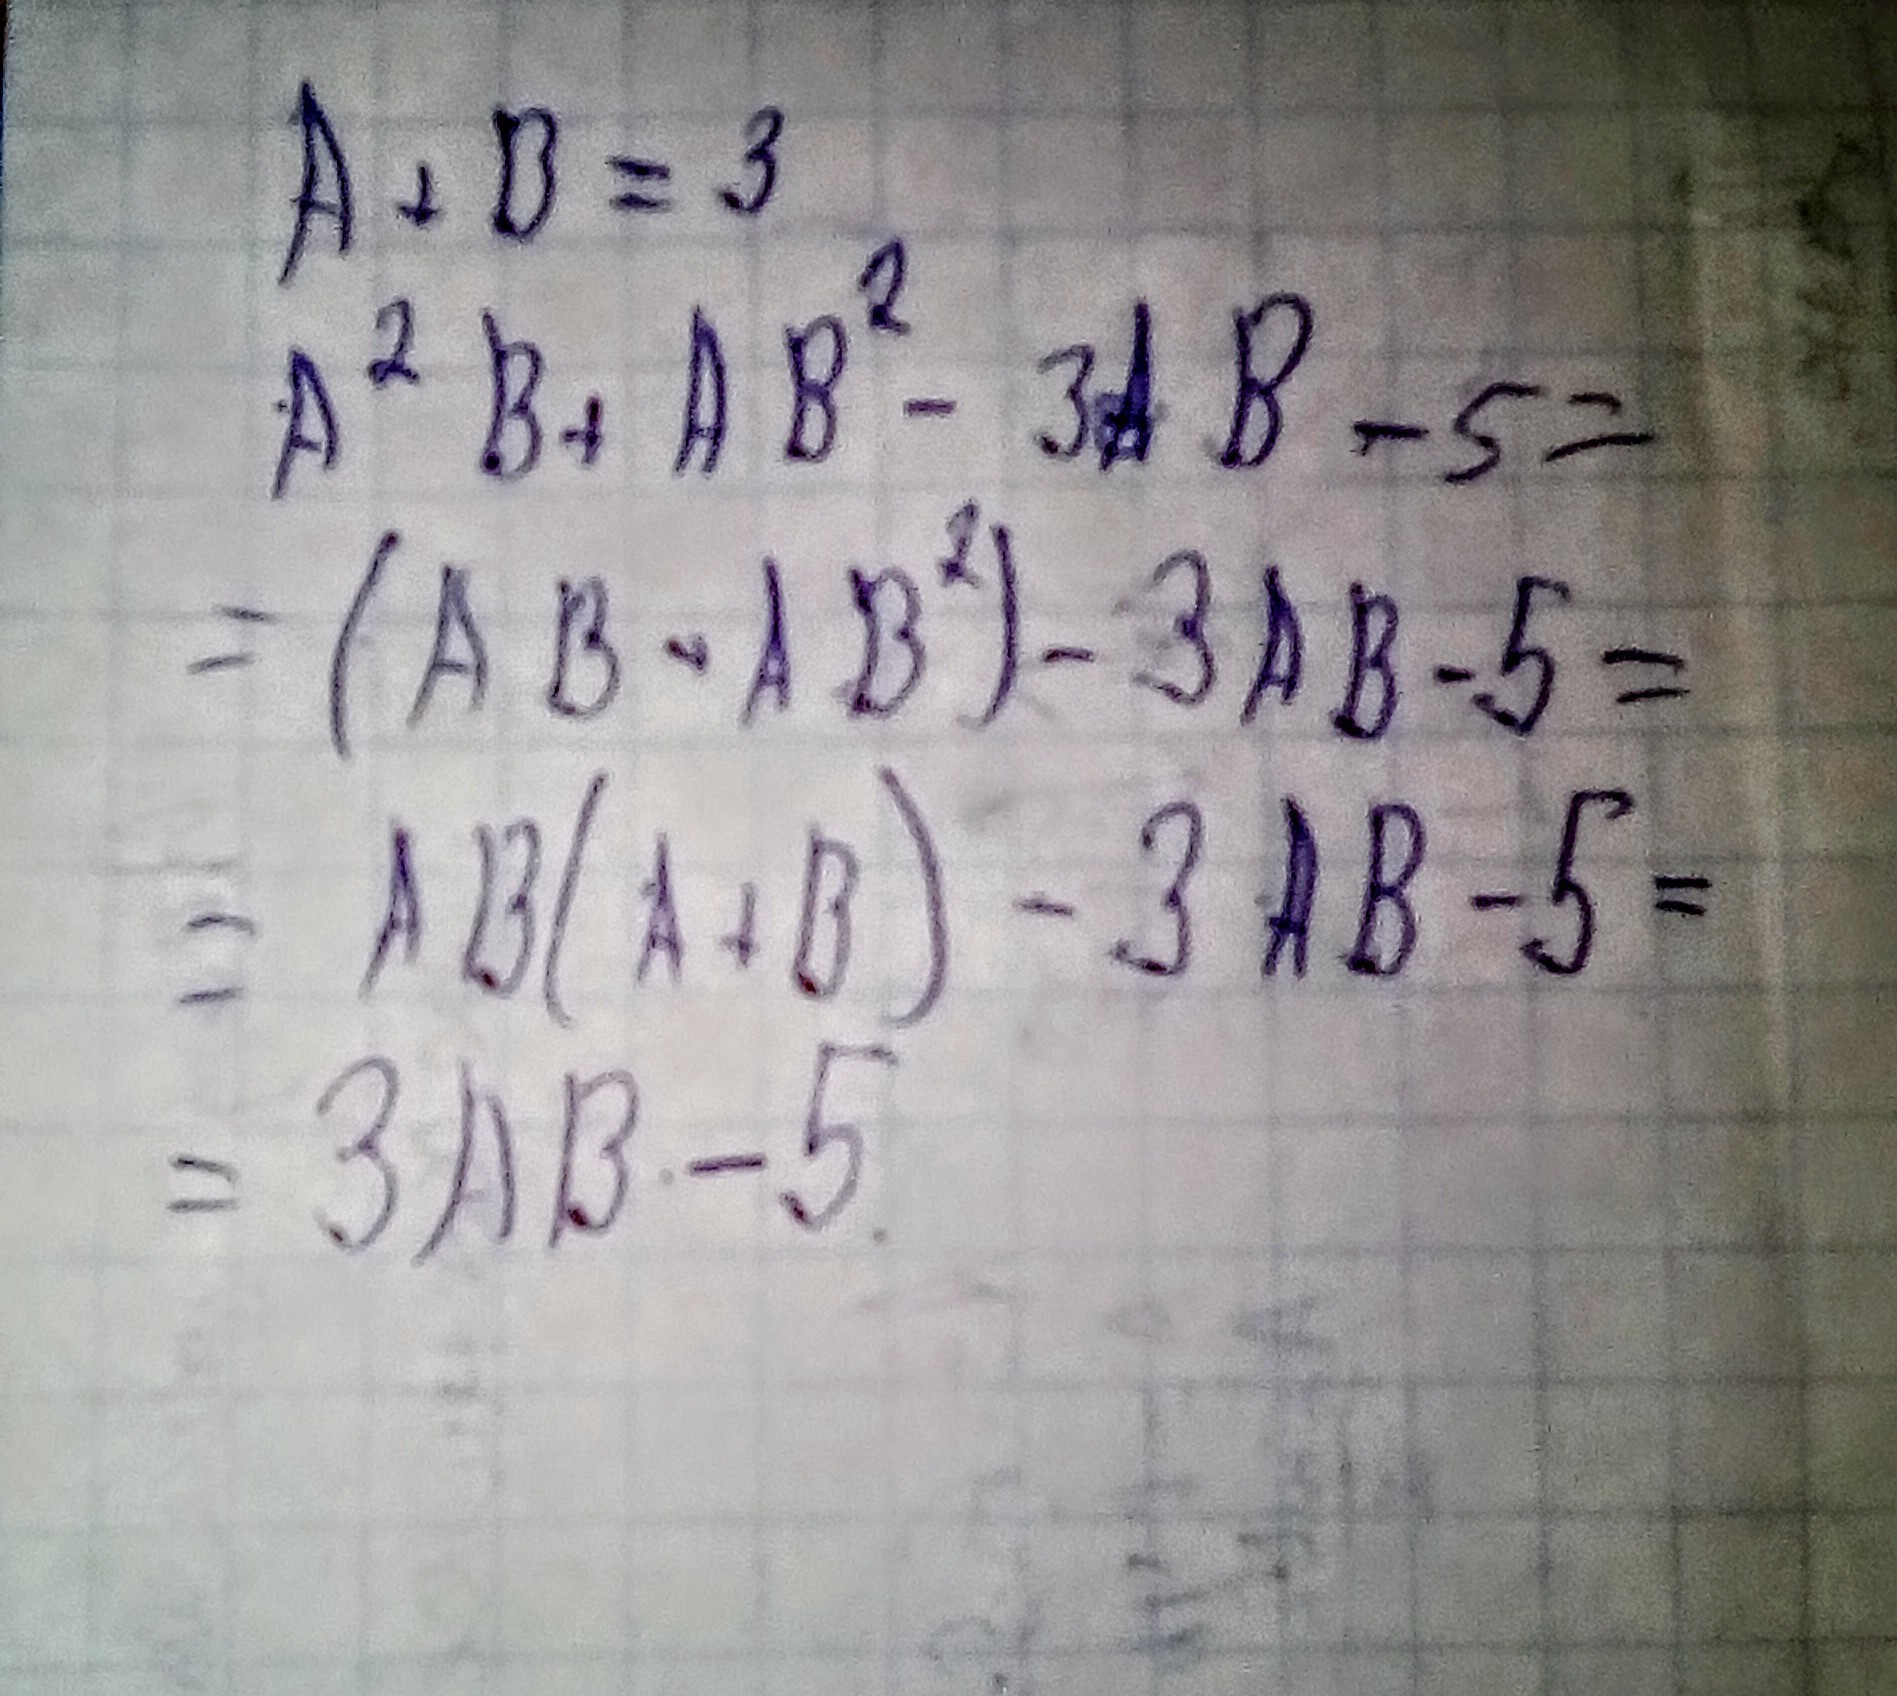 A + B = 3
A² B + A B² - 3A B - 5 =
= (A B + A B²) - 3 A B - 5 =
= A B (A + B) - 3 A B - 5 =
= 3 A B - 5